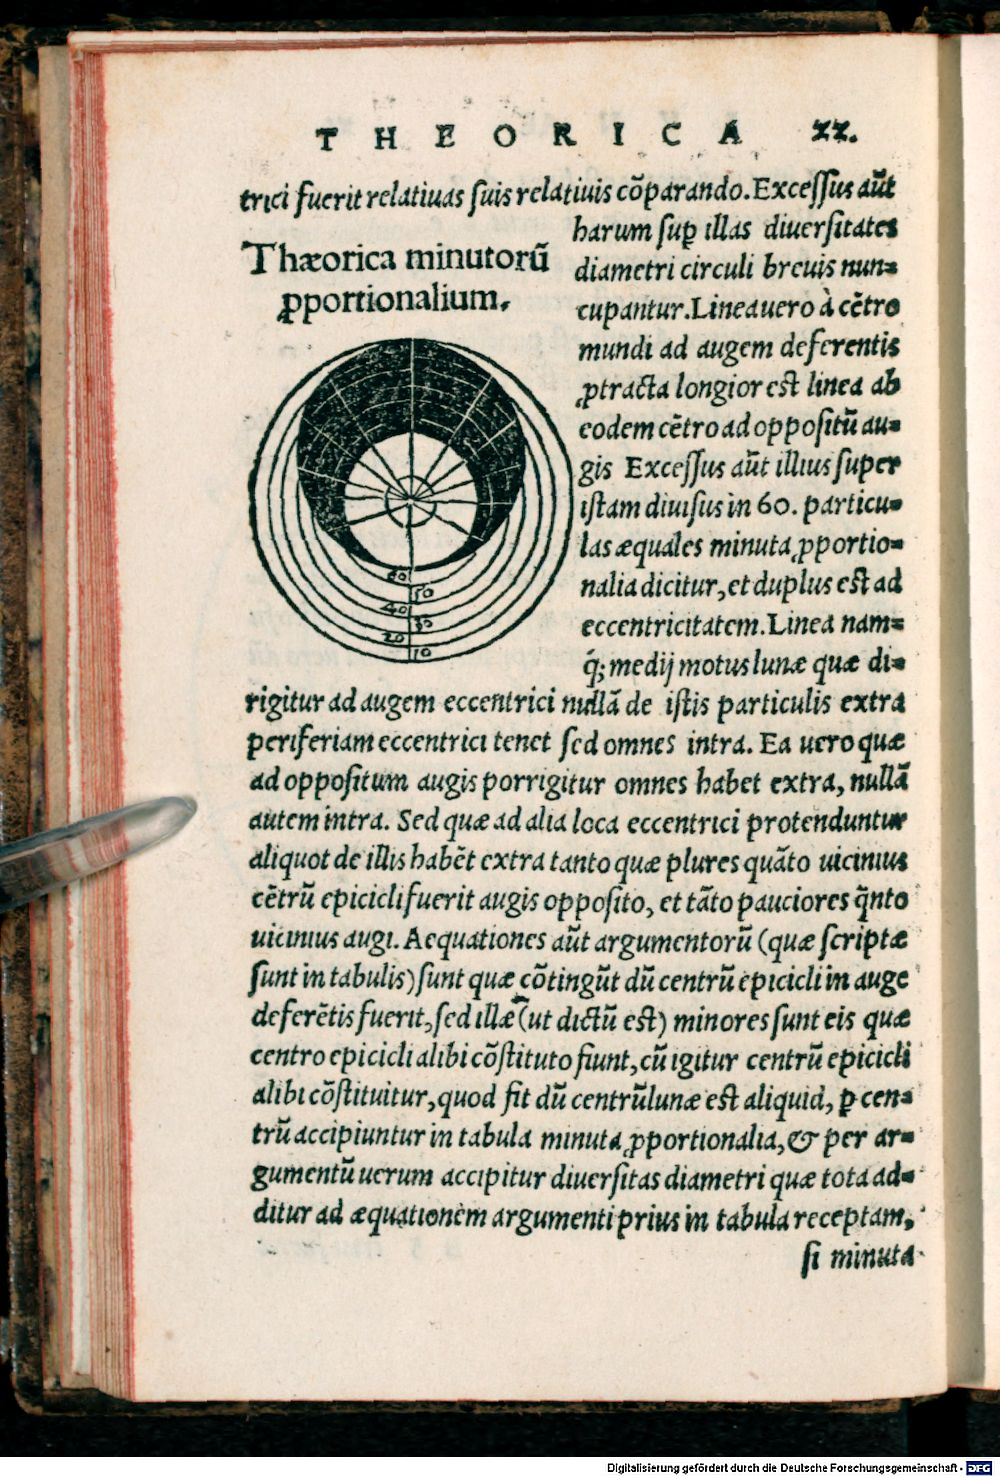 THEORICA 22.
trici fuerit relatiuas suis relatiuis cōparando. Excessus aūt
harum suꝑ illas diuersitates
Thæorica minutorū
ꝓportionalium.
diametri circuli breuis nun=
cupantur. Linea uero à cētro
mundi ad augem deferentis
ꝓtracta longior est linea ab
eodem cētro ad oppositū au=
gis Excessus aūt illius super
istam diuisus in 60. particu=
las æquales minuta ꝓportio=
nalia dicitur, et duplus est ad
eccentricitatem. Linea nam=
q̄; medij motus lunæ quæ di=
60
50
40
30
20
10
rigitur ad augem eccentrici nullā de istis particulis extra
periferiam eccentrici tenet sed omnes intra. Ea uero quæ
ad oppositum augis porrigitur omnes habet extra, nullā
autem intra. Sed quæ ad alia loca eccentrici protenduntur
aliquot de illis habēt extra tanto quæ plures quāto uicinius
cētrū epicicli fuerit augis opposito, et tāto pauciores q̄nto
uicinius augi. Aequationes aūt argumentorū (quæ scriptæ
sunt in tabulis) sunt quæ cōtingūt dū centrū epicicli in auge
deferētis fuerit, sed illæ (ut dictū est) minores sunt eis quæ
centro epicicli alibi cōstituto fiunt, cū igitur centrū epicicli
alibi cōstituitur, quod fit dū centrū lunæ est aliquid, ꝑ cen=
trū accipiuntur in tabula minuta ꝓportionalia, & per ar=
gumentū uerum accipitur diuersitas diametri quæ tota ad=
ditur ad æquationem argumenti prius in tabula receptam,
si minuta
Digitalisierung gefördert durch die Deutsche Forschungsgemeinschaft - DFG